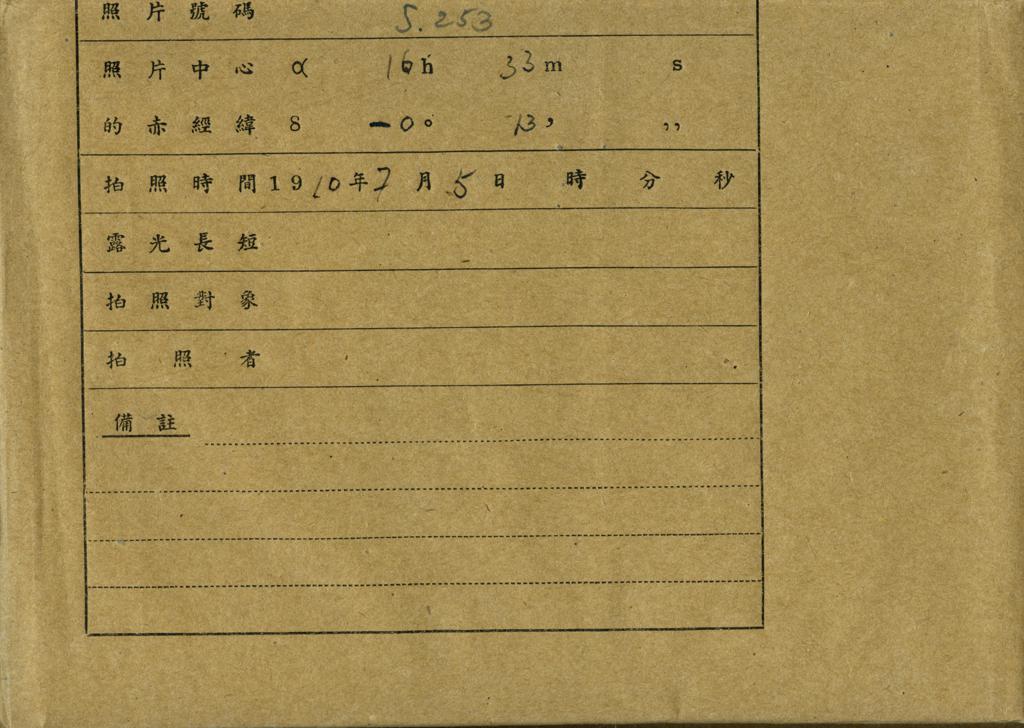 照片號碼 S.253
照片中心 α 16h 33m s
的赤經緯 δ -0° 13′ ″
拍照時間 1910年7月5日 時 分 秒
露光長短
拍照對象
拍照者
備註